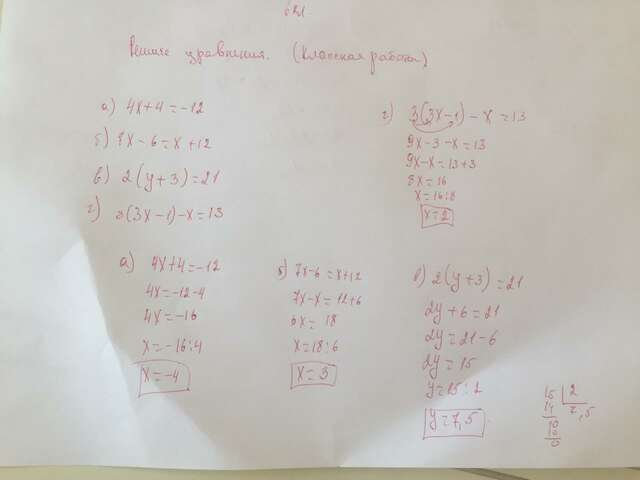 6кл.
Решите уравнения. (Классная работа)
а) 4x+4=-12
б) 7x-6=x+12
в) 2(y+3)=21
г) 3(3x-1)-x=13
г) 3(3x-1)-x=13
9x-3-x=13
9x-x=13+3
8x=16
x=16:8
x=2
а) 4x+4=-12
4x=-12-4
4x=-16
x=-16:4
x=-4
б) 7x-6=x+12
7x-x=12+6
6x=18
x=18:6
x=3
в) 2(y+3)=21
2y+6=21
2y=21-6
2y=15
y=15:2
y=7,5
15 2
14 7,5
10
10
0